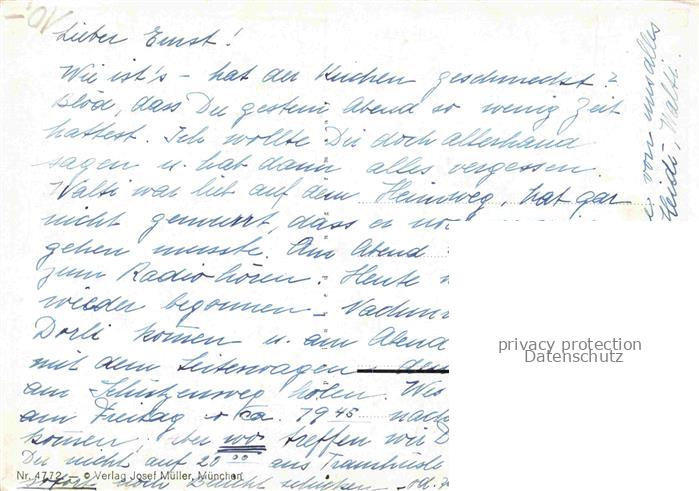 Lieber Ernst!
Wie ist's – hat der Kuchen geschmeckt?
Blöd, dass Du gestern Abend so wenig Zeit
hattest. Ich wollte Dir doch allerhand
sagen u. hat dann alles vergessen.
Walti war lieb auf dem Heimweg, hat gar
nicht gemurrt, dass er no
gehen musste. Am Abend
zum Radio hören. Heute
wieder begonnen – Nachm
Dorli kommen u. am Abend
mit dem Leiterwagen
am Schützenweg holen. Wes
am Freitag ca. 19 45 nach
kommen, aber wo treffen wir D
Du nicht auf 20 00 ans Tramhüsle
sofort noch Bericht schicken – od.
von uns alles
Heidi, Walti.
privacy protection
Datenschutz
Nr. 4772 – © Verlag Josef Müller, München